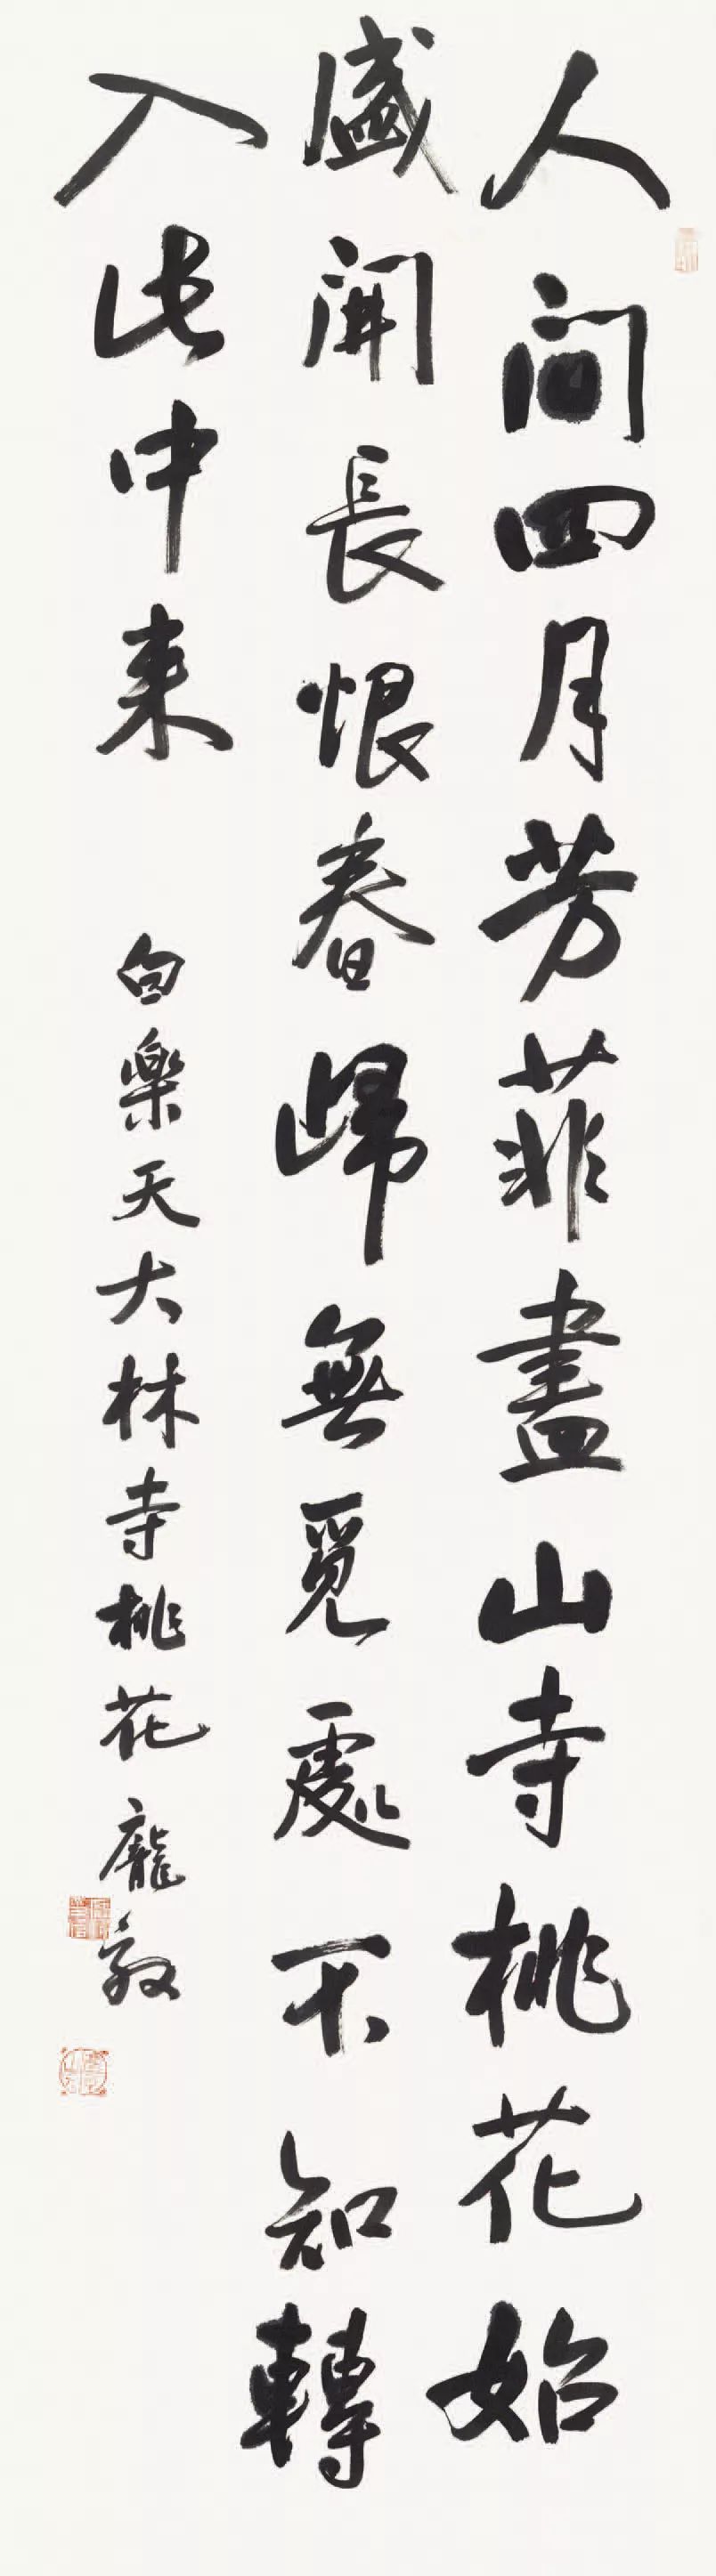 人间四月芳菲盡山寺桃花始
盛開長恨春歸無覓處不知轉
入此中来
白樂天大林寺桃花 龐